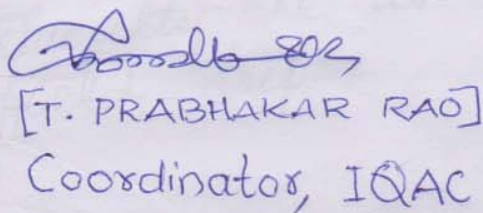 [T. PRABHAKAR RAO]
Coordinator, IQAC